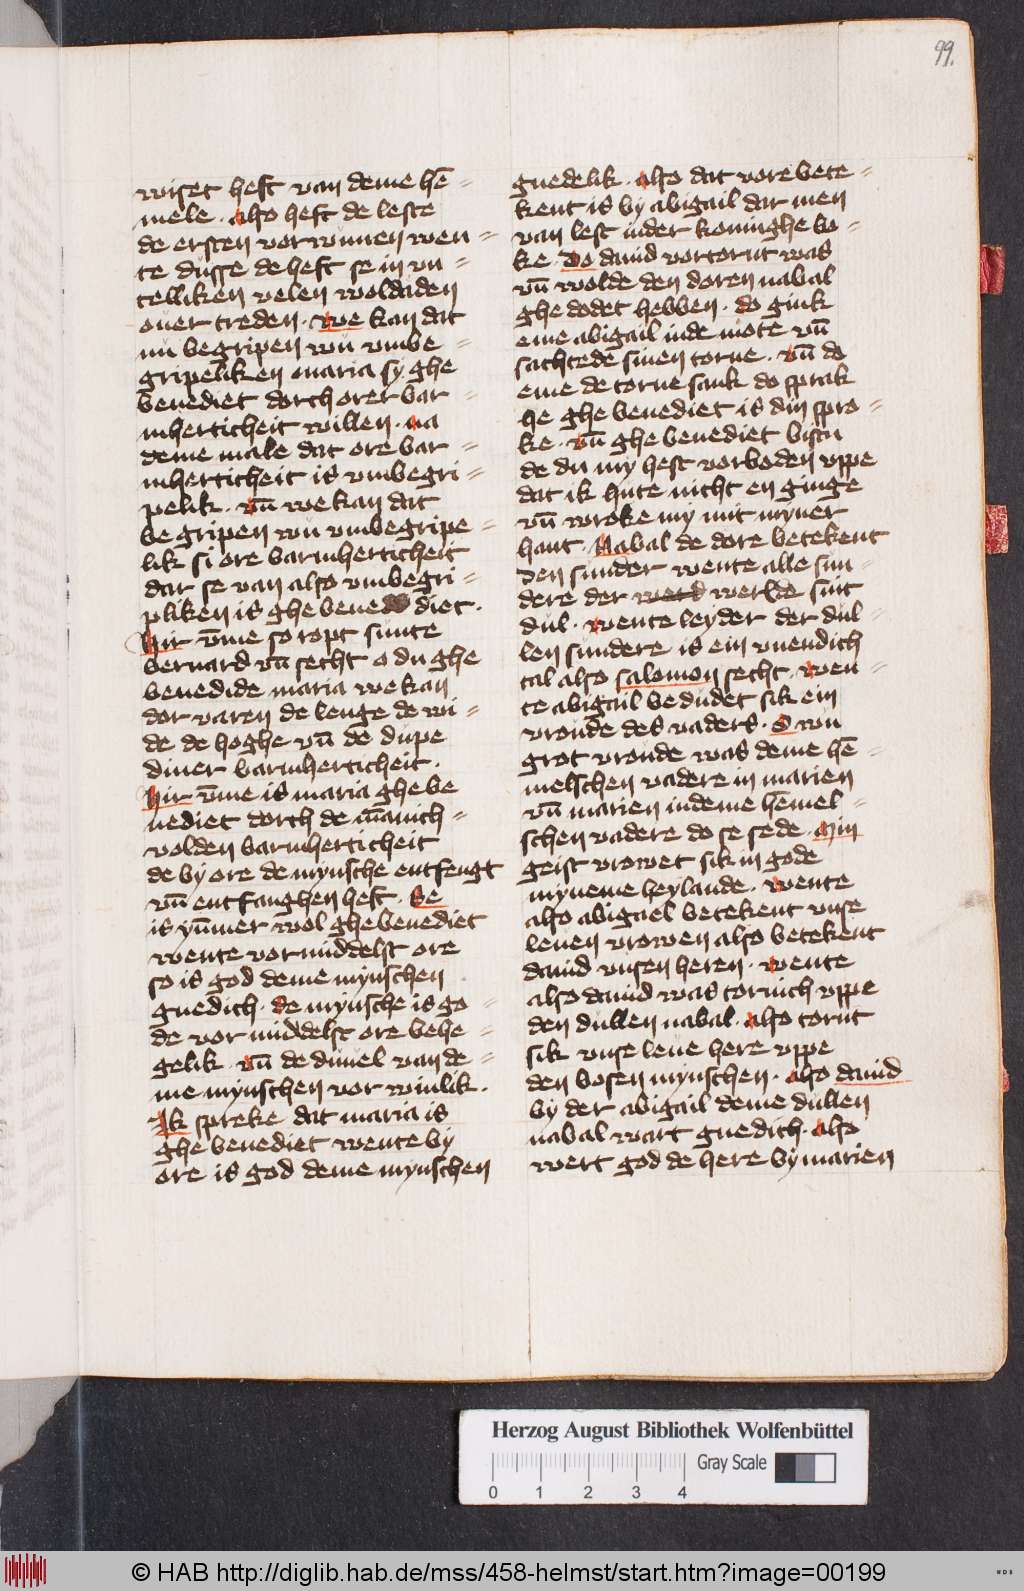 99.
wiset heft van deme hē=
mele. Also heft de leste
de ersten vorwunnen wen=
te dusse de heft se in un=
telliken velen woldaden
ouer treden. We kan dat
nu begripen wu vmbe=
gripeliken maria sy ghe
benediet dorch orer bar=
mherticheit willen. na
deme male dat ore bar=
mherticheit is vmbegri=
pelik. vn̄ we kan dat
begripen wu vmbegripe=
lik si ore barmherticheit
dar se van also vmbegri=
pliken is ghebene diet.
Hir v̄me so ropt sunte
bernard vn̄ secht o du ghe
benedide maria we kan
dor varen de lenge de wi=
de de hoghe vn̄ de dupe
diner barmherticheit.
Hir v̄me is maria ghebe
nediet dorch de m̄anich=
volden barmherticheit
de by ore de mynsche entfengt
vn̄ entfanghen heft. Se
is yūmer wol ghebenediet
wente vormiddelst ore
so is god deme mynschen
gnedich. de mynsche is go=
de vor middelst ore behe=
gelik. vn̄ de duuel van de=
me mynschen vor winlik.
Ik spreke dat maria is
ghe benediet wente by
ore is god deme mynschen
gnedelik. Also dat vore bete=
kent is by abigail dar men
van lest in der koninghe bo=
ke. Do dauid vortornt was
vn̄ wolde den doren nabal
ghe dodet hebben. do gink
eme abigail in de mote vn̄
sachtede sinen torne. vn̄ do
eme de torne sank do sprak
he ghe benediet is din spro=
ke. vn̄ ghe benediet bistu
de du my hest vorboden vppe
dat ik hute nicht en ginge
vn̄ wroke my mit myner
hant. Nabal de dore betekent
den sunder wente alle sun=
dere der werld werlde sint
dul. wente leyder der dul=
len sundere is ein vnendich
tal also salomon secht. wen=
te abigail bedudet sik ein
vronde des vaders. O wu
grot vronde was deme hē=
melschen vadere in marien
vn̄ marien in deme hēmel=
schen vadere do se sede. Min
geist vrowet sik in gode
myneme heylande. wente
also abigael betekent vnse
leuen vrowen also betekent
dauid vnsen heren. wente
also dauid was tornich vppe
den dullen nabal. also tornt
sik vnse leue here vppe
den bosen mynschen. also dauid
by der abigail deme dullen
nabal wart gnedich. also
wert god de here by marien
Herzog August Bibliothek Wolfenbüttel
Gray Scale
0 1 2 3 4
© HAB http://diglib.hab.de/mss/458-helmst/start.htm?image=00199